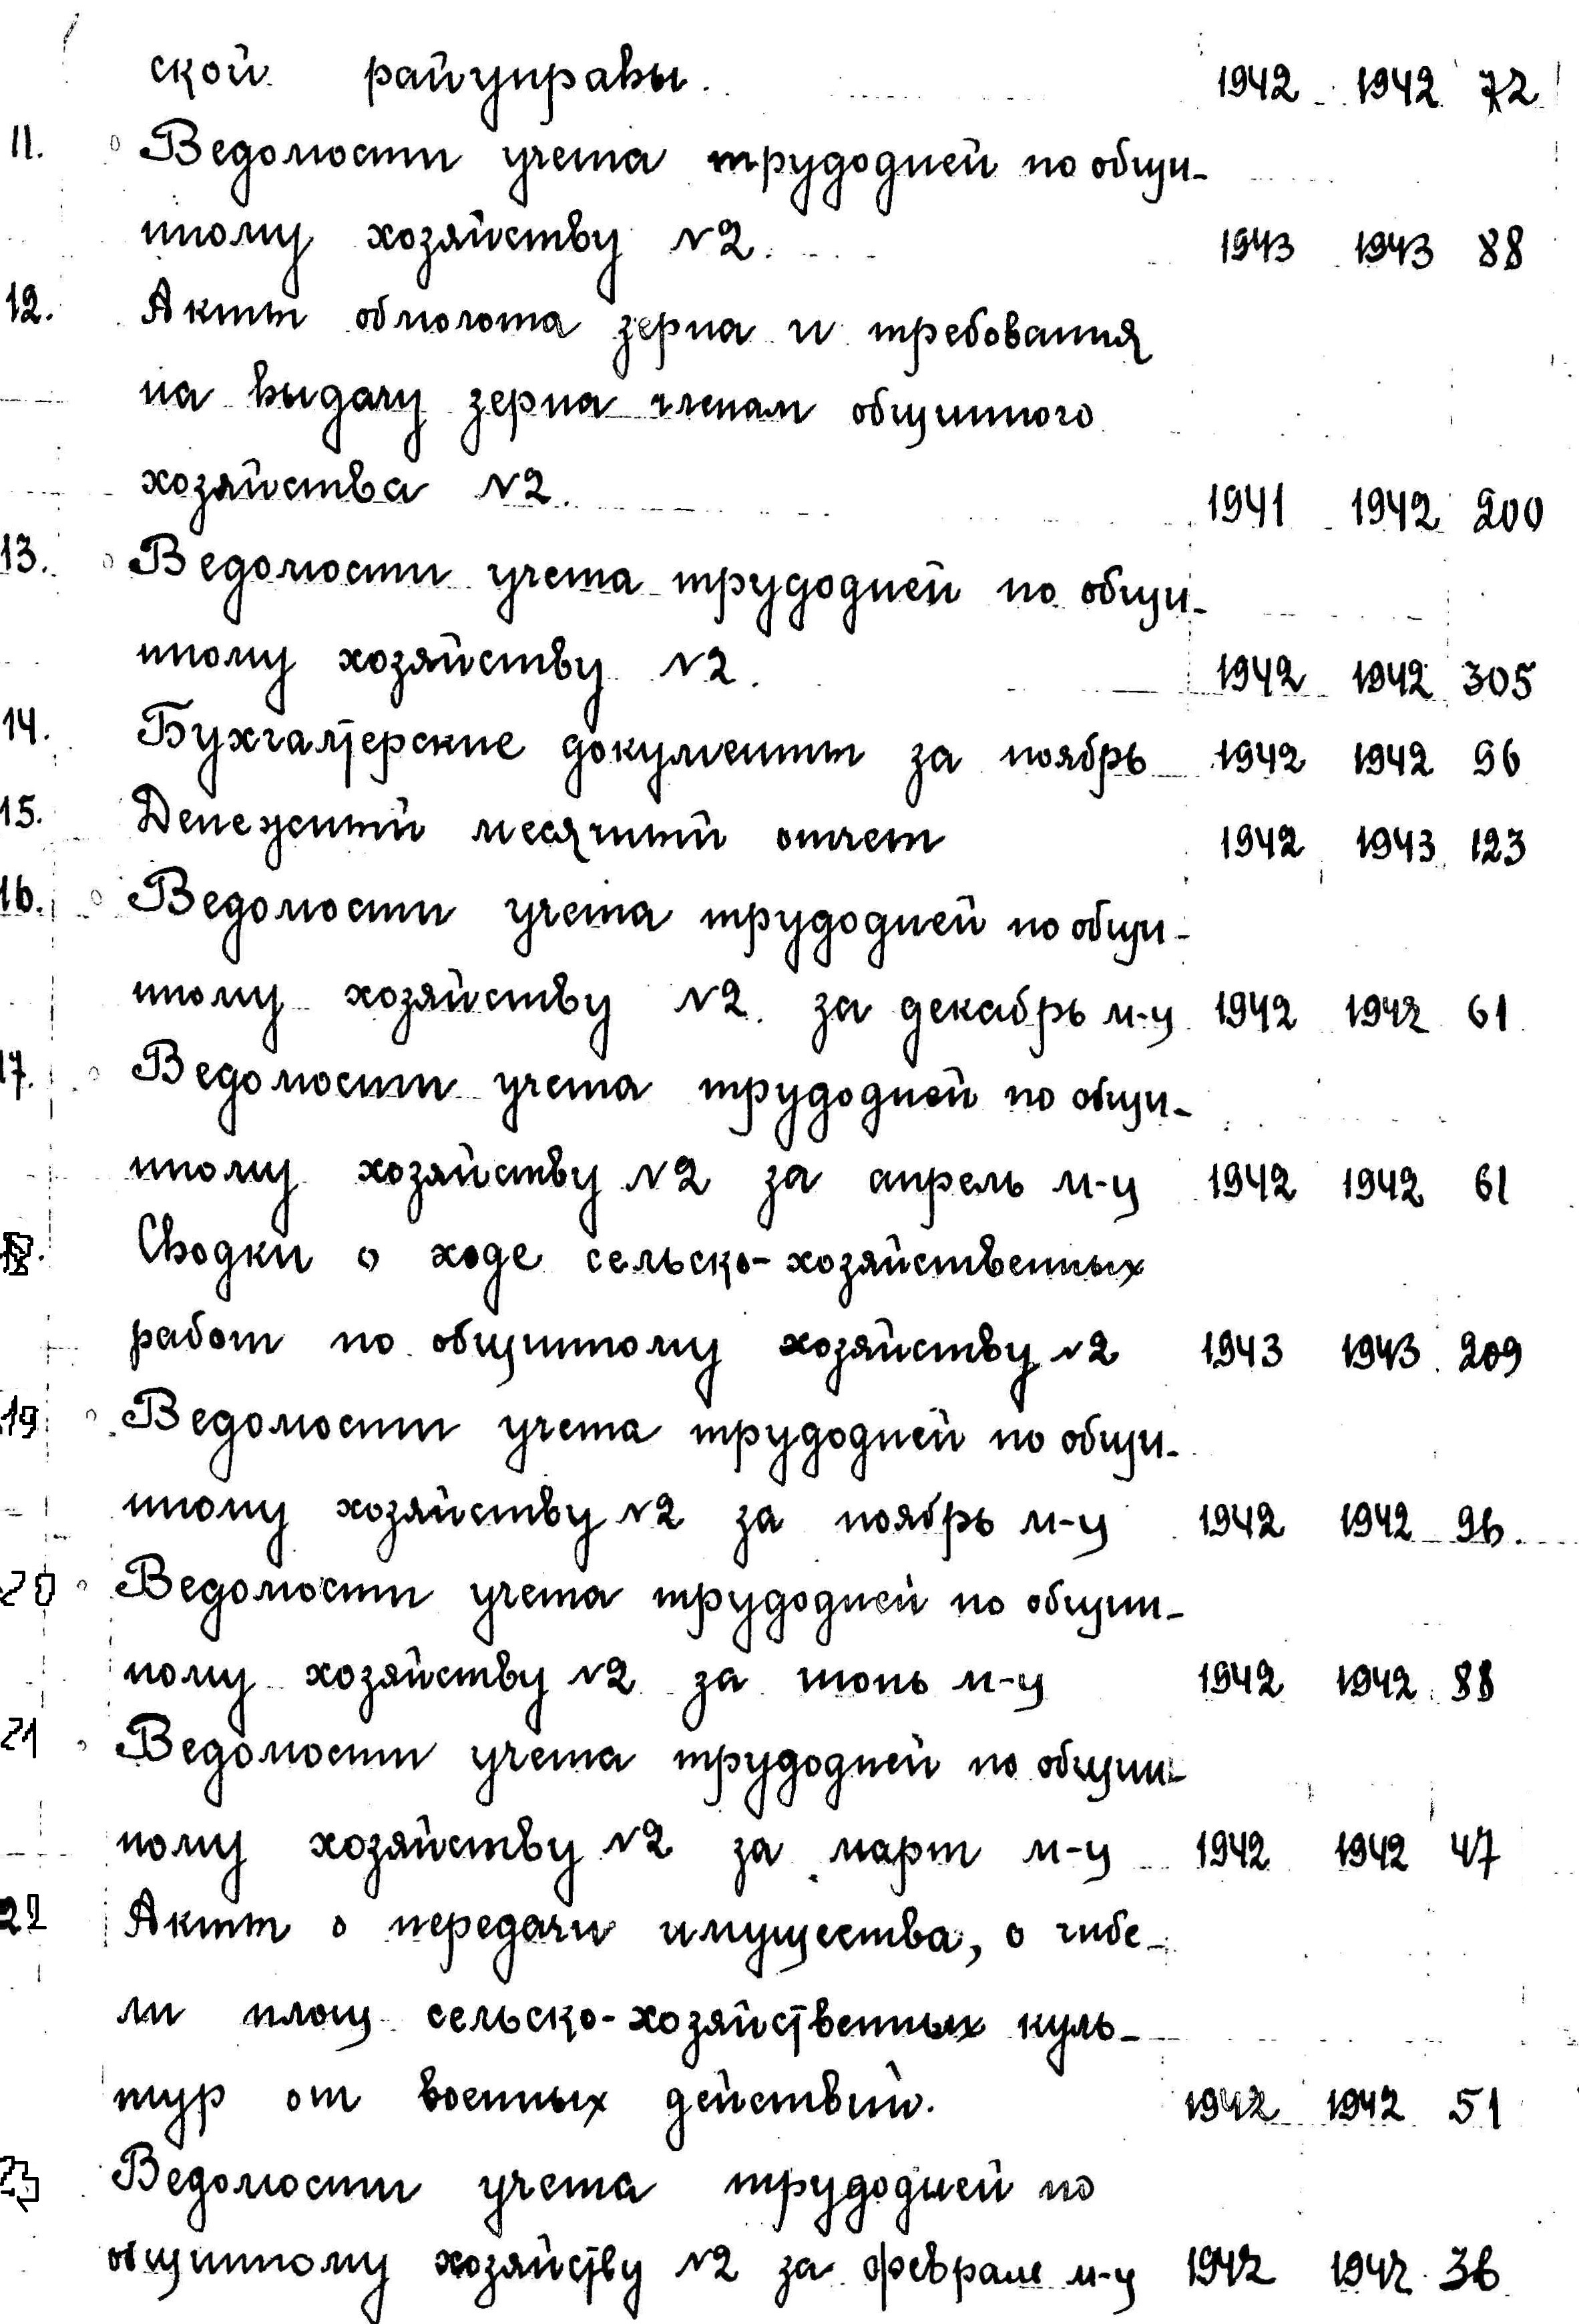 ской райуправы. 1942 1942 72
11. Ведомости учета трудодней по общи-
нному хозяйству №2. 1943 1943 88
12. Акты обмолота зерна и требования
на выдачу зерна членам общинного
хозяйства №2. 1941 1942 200
13. Ведомости учета трудодней по общи-
нному хозяйству №2. 1942 1942 305
14. Бухгалтерские документы за ноябрь 1942 1942 96
15. Денежный месячный отчет 1942 1943 123
16. Ведомости учета трудодней по общи-
нному хозяйству №2. за декабрь м-ц 1942 1942 61
17. Ведомости учета трудодней по общи-
нному хозяйству №2 за апрель м-ц 1942 1942 61
18. Сводки о ходе сельско-хозяйственных
работ по общинному хозяйству №2 1943 1943 209
19 Ведомости учета трудодней по общи-
нному хозяйству №2 за ноябрь м-ц 1942 1942 96.
20 Ведомости учета трудодней по общин-
ному хозяйству №2 за июнь м-ц 1942 1942 88
21 Ведомости учета трудодней по общин-
ному хозяйству №2 за март м-ц 1942 1942 47
22 Акты о передачи имущества, о гибе-
ли площ сельско-хозяйственных куль-
тур от военных действий. 1942 1942 51
23 Ведомости учета трудодней по
общинному хозяйству №2 за феврале м-ц 1942 1942 36